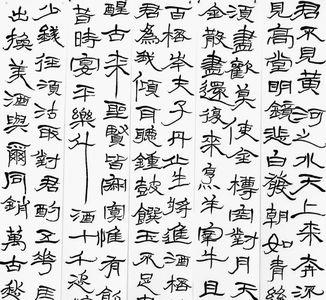 君不見黃河之水天上來奔流
見高堂明鏡悲白髮朝如青絲
須盡歡莫使金樽空對月天
金散盡還復來烹羊宰牛且
百桮岑夫子丹丘生將進酒桮
君為我傾耳聽鐘鼓饌玉不足
醒古來聖賢皆寂寞惟有飲
昔時宴平樂斗酒十千恣
少錢徑須沽取對君酌五花馬
出換美酒與爾同銷萬古愁